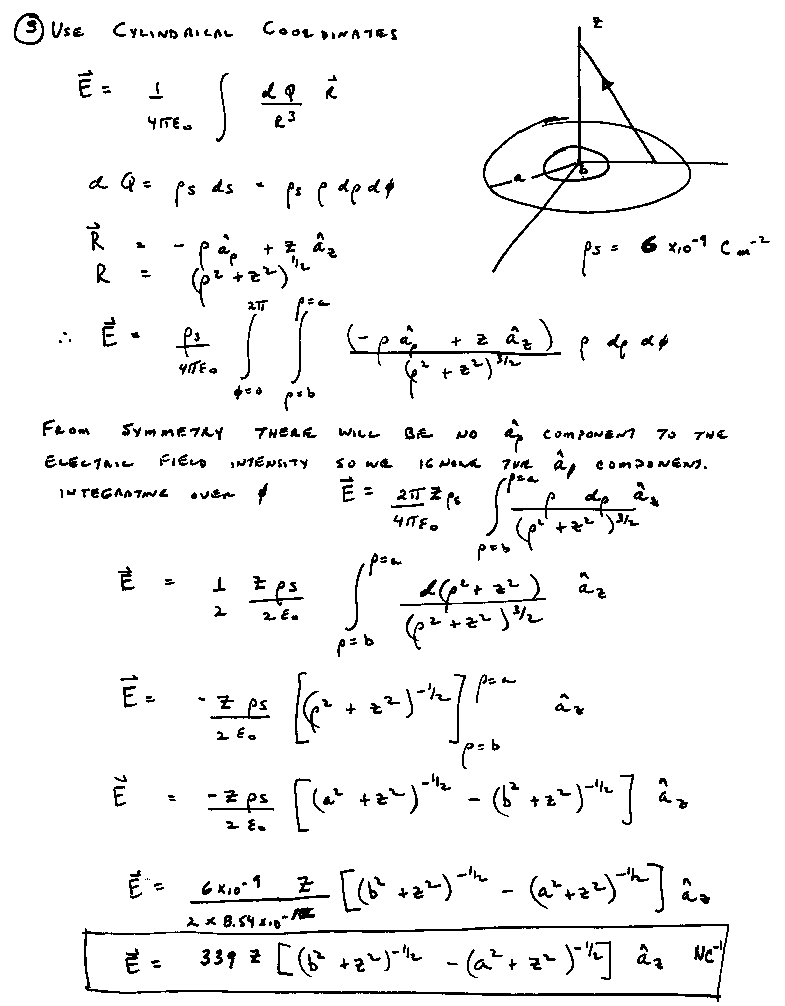 ③ USE CYLINDRICAL COORDINATES
z
E⃗ = 1/4πε₀ ∫ dQ/R³ R⃗
a
b
dQ = ρs ds = ρs ρ dρ dφ
ρs = 6 x10⁻⁹ C m⁻²
R⃗ = - ρ âρ + z âz
R = (ρ² + z²)^1/2
∴ E⃗ = ρs/4πε₀ ∫_{φ=0}^{2π} ∫_{ρ=b}^{ρ=a} (-ρ âρ + z âz)/(ρ² + z²)^3/2 ρ dρ dφ
FROM SYMMETRY THERE WILL BE NO âρ COMPONENT TO THE
ELECTRIC FIELD INTENSITY SO WE IGNORE THE âρ COMPONENT.
INTEGRATING OVER φ E⃗ = 2π z ρs/4πε₀ ∫_{ρ=b}^{ρ=a} ρ dρ âz/(ρ² + z²)^3/2
E⃗ = 1/2 zρs/2ε₀ ∫_{ρ=b}^{ρ=a} d(ρ² + z²)/(ρ² + z²)^3/2 âz
E⃗ = -zρs/2ε₀ [(ρ² + z²)^-1/2]_{ρ=b}^{ρ=a} âz
E⃗ = -zρs/2ε₀ [(a² + z²)^-1/2 - (b² + z²)^-1/2] âz
E⃗ = 6x10⁻⁹ z/2 x 8.54 x10⁻ [(b² + z²)^-1/2 - (a² + z²)^-1/2] âz
E⃗ = 339 z [(b² + z²)^-1/2 - (a² + z²)^-1/2] âz NC⁻¹